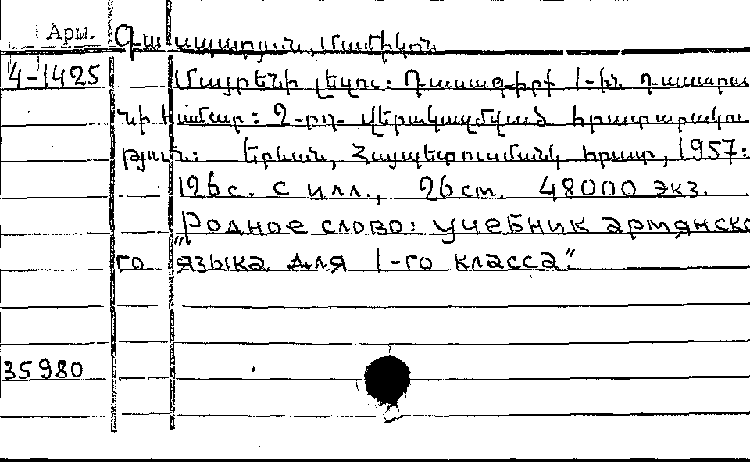 Арм. Գասպարյան, Մամիկոն
4-1425 Մայրենի լեզու: Դասագիրք 1-ին դասարա
նի համար: 2-րդ վերակազմված հրատարակու
թյուն: Երևան, Հայպետուսմանկ հրատ, 1957:
126с. с илл., 26см. 48000 экз.
"Родное слово: учебник армянско
го языка для 1-го класса."
35980